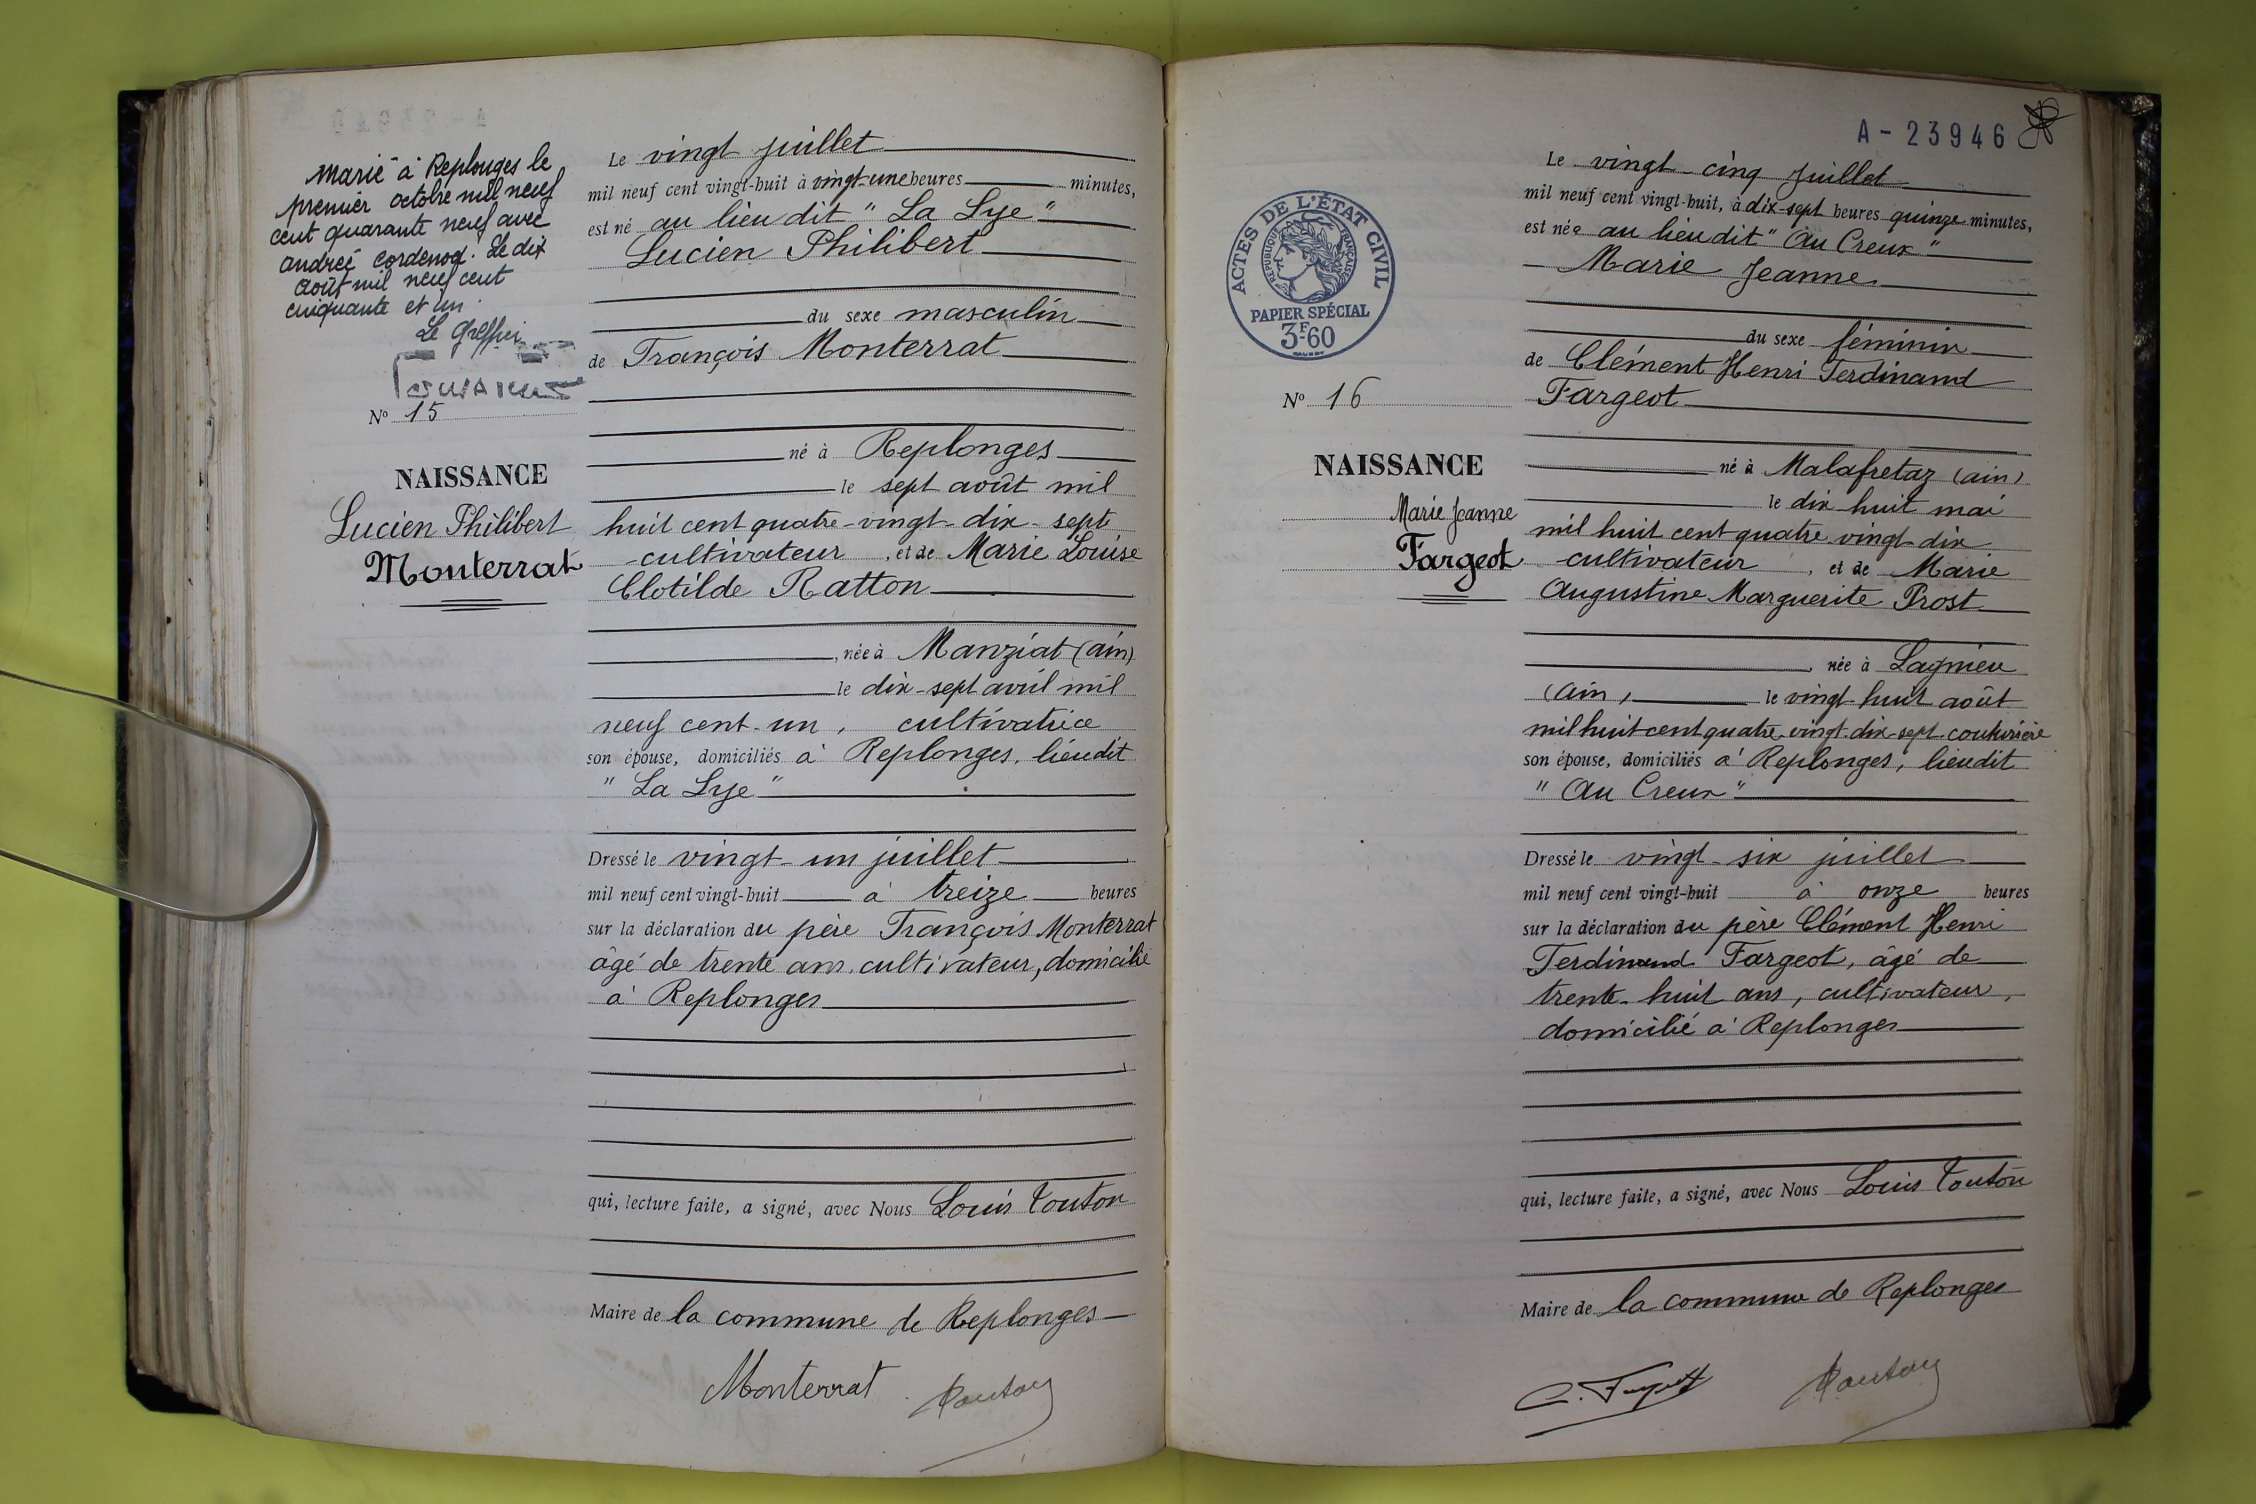 Marié à Replonges le
premier octobre mil neuf
cent quarante neuf avec
andrée Cordenod. Le dix
août mil neuf cent
cinquante et un.
Le Greffier
N° 15
NAISSANCE
Lucien Philibert
Monterrat
Le vingt juillet
mil neuf cent vingt-huit à vingt-une heures minutes,
est né au lieu dit "La Lye"
Lucien Philibert
du sexe masculin
de François Monterrat
né à Replonges
le sept août mil
huit cent quatre-vingt-dix-sept
cultivateur, et de Marie Louise
Clotilde Ratton
, née à Manziat (ain)
le dix-sept avril mil
neuf cent-un, cultivatrice
son épouse, domiciliés à Replonges, lieudit
"La Lye"
Dressé le vingt-un juillet
mil neuf cent vingt-huit à treize heures
sur la déclaration du père François Monterrat
âgé de trente ans, cultivateur, domicilié
à Replonges
qui, lecture faite, a signé, avec Nous Louis Touton
Maire de la commune de Replonges
Monterrat Touton
A-23946
ACTES DE L'ÉTAT CIVIL
RÉPUBLIQUE FRANÇAISE
PAPIER SPÉCIAL
3F.60
N° 16
NAISSANCE
Marie Jeanne
Fargeot
Le vingt-cinq juillet
mil neuf cent vingt-huit, à dix-sept heures quinze minutes,
est née au lieu dit "Au Creux"
Marie Jeanne
du sexe féminin
de Clément Henri Ferdinand
Fargeot
né à Malafretaz (ain)
le dix huit mai
mil huit cent quatre-vingt-dix
cultivateur, et de Marie
Augustine Marguerite Prost
, née à Lagnieu
(ain), le vingt huit août
mil huit cent quatre-vingt-dix-sept couturière
son épouse, domiciliés à Replonges, lieudit
"Au Creux"
Dressé le vingt-six juillet
mil neuf cent vingt-huit à onze heures
sur la déclaration du père Clément Henri
Ferdinand Fargeot, âgé de
trente-huit ans, cultivateur,
domicilié à Replonges
qui, lecture faite, a signé, avec Nous Louis Touton
Maire de la commune de Replonges
C. Fargeot Touton